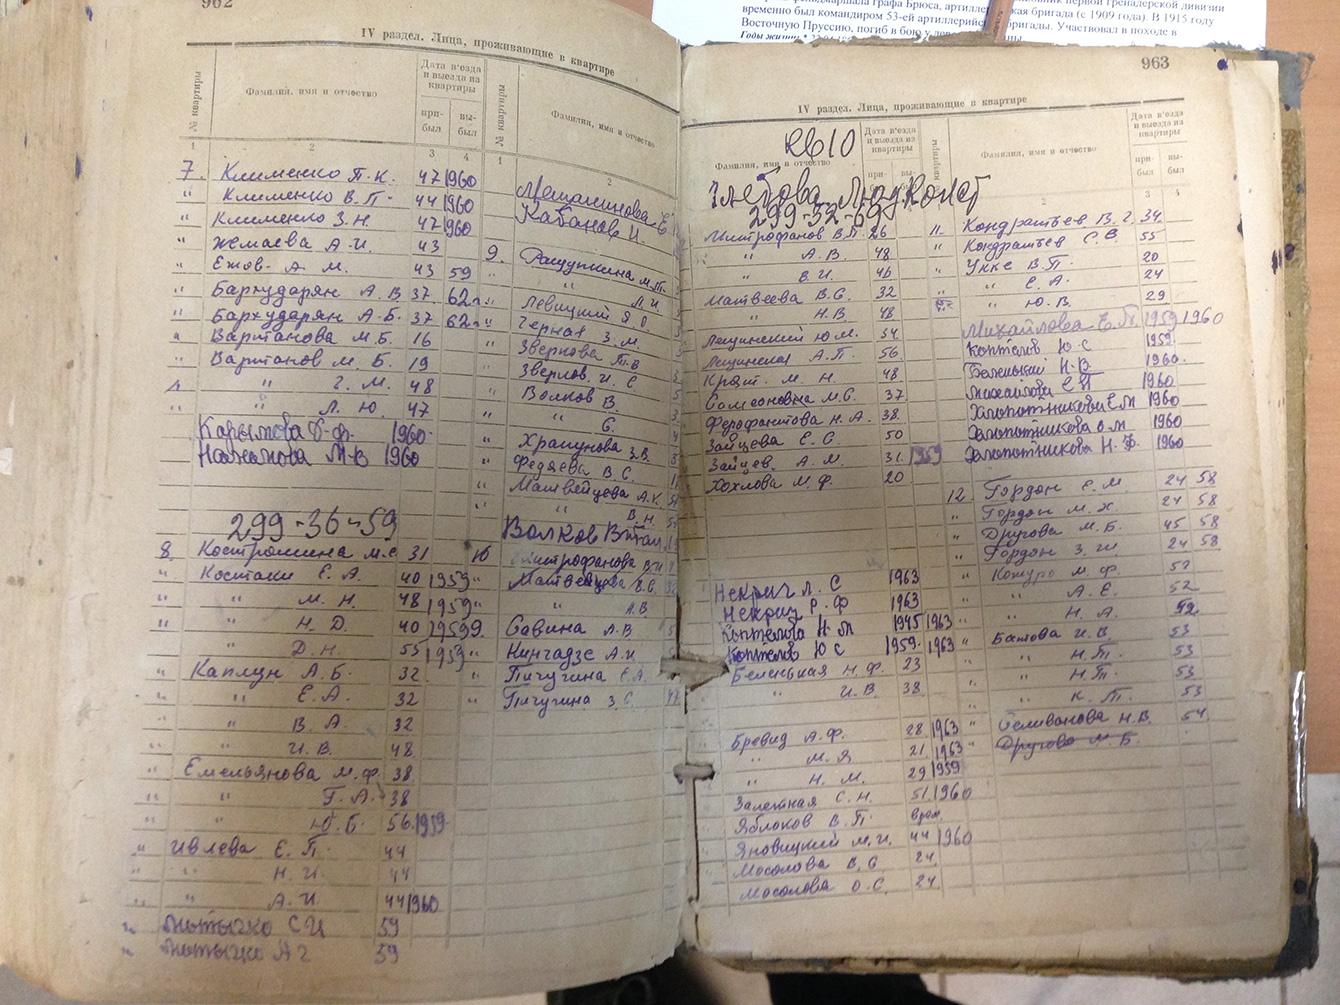 962
фельдмаршала графа Брюса, артиллерийская бригада (с 1909 года). В 1915 году
временно был командиром 53-ей артиллерийской бригады. Участвовал в походе в
Восточную Пруссию, погиб в бою у
Годы жизни:
IV раздел. Лица, проживающие в квартире
№ квартиры
Фамилия, имя и отчество
Дата в'езда и выезда из квартиры
при-был
вы-был
1 2 3 4
7. Клименко П. К. 47 1960
" Клименко В. П. 44 1960
" Клименко З. Н. 47 1960
" Жемаева А. И. 43
" Ежов А. М. 43 59
" Бархударян А. В. 37 62г.
" Бархударян А. Б. 37 62г.
" Вартанова М. Б. 16
" Вартанов М. Б. 19
" " Г. М. 48
" " Л. Ю. 47
Карымова 1960
Нажанова М В 1960
299-36-59
8. Костромина М. С. 31
" Костаки Е. А. 40 1959
" " М. Н. 48 1959
" " Н. Д. 40 1959
" " Д. Н. 55 1959
" Каплун А. Б. 32
" " Е. А. 32
" " В А. 32
" " И. В. 48
" Емельянова М. Ф. 38
" " Г. А. 38
" " Ю. Б. 56. 1959
" Ивлева Е. П. 44
" " Н. И. 44
" " А. И. 44 1960
" Мотычко С И 59
" Мотычко А Г 59
№ квартиры
Фамилия, имя и отчество
1 2
Кабанов И.
9. Ращупкина М. П.
" " Л. И.
" Левицкий Я. О.
" Черная З. М.
" Зверкова Т. В
" Зверков. И. Е
" Волков В.
" " С.
" Храпунова З. В.
" Федяева В. С.
" Матвейцева А. К.
" " В. Н.
Волков Витал
10 Митрофанова В. И
" Матвейцева В. С.
" " А. В
9. Савина А. В
" Нингадзе А. И
" Пичугина Е. А.
" Пичугина З. С. 47
963
IV раздел. Лица, проживающие в квартире
Фамилия, имя и отчество
Дата в'езда и выезда из квартиры
при-был
вы-был
кв 10
Глебова Люд Конст
299-32-69
Митрофанов В. П. 26
" А. В. 48
" В. И. 46
Матвеева В. С. 32
" Н. В 48
Лещинский Ю. М. 34
Лещинская А. П. 56
Крот. М. Н. 48
Самсоновна М. С. 37
Ферофонтова Н. А. 38.
Зайцева Е. С 50
Зайцев. А. М. 31. 1959
Хохлова М. Ф. 20
Некрич Л. С 1963
Некрич Р. Ф 1963
Коптелова Н. М 1945 1963
Коптелов Ю С 1959. 1963
Беленькая Н. Ф. 23
" И. В 38.
Бревид А. Ф. 28. 1963
" М. Я 21. 1963
" Н. М. 29 1959
Залетная С. Н. 51. 1960
Яблоков В. П. врем.
Яновицкий М. И. 44 1960
Мосолова В. С 24.
Мосолова О. С. 24.
квартиры
Фамилия, имя и отчество
Дата в'езда и выезда из квартиры
при-был
вы-был
2 3 4
11. Кондратьев В. Г. 34.
" Кондратьев С. В. 55
" Укке В. П. 20
" " Е. А. 24
" " Ю. В 29
Михайлова Е. П. 1959 1960
Коптелов Ю. С 1959.
Беленький И. В 1960.
Михайлова Е П 1960
Хлопотникови Е М 1960
Хлопотникова О. М 1960
Хлопотникова Н. Ф. 1960
12. Гордон Е. М. 24 58
" Гордон М. Х. 24 58
" Другова М. Б. 45 58
" Гордон З. И. 24 58
" Кожуро М. Ф. 52
" " А. Е. 52
" " Н. А. 52
" Батова И. В. 53
" " Н. П. 53
" " Н. П. 53
" " К. П. 53
" Селиванова Н. В. 54.
" Другова М. Б.